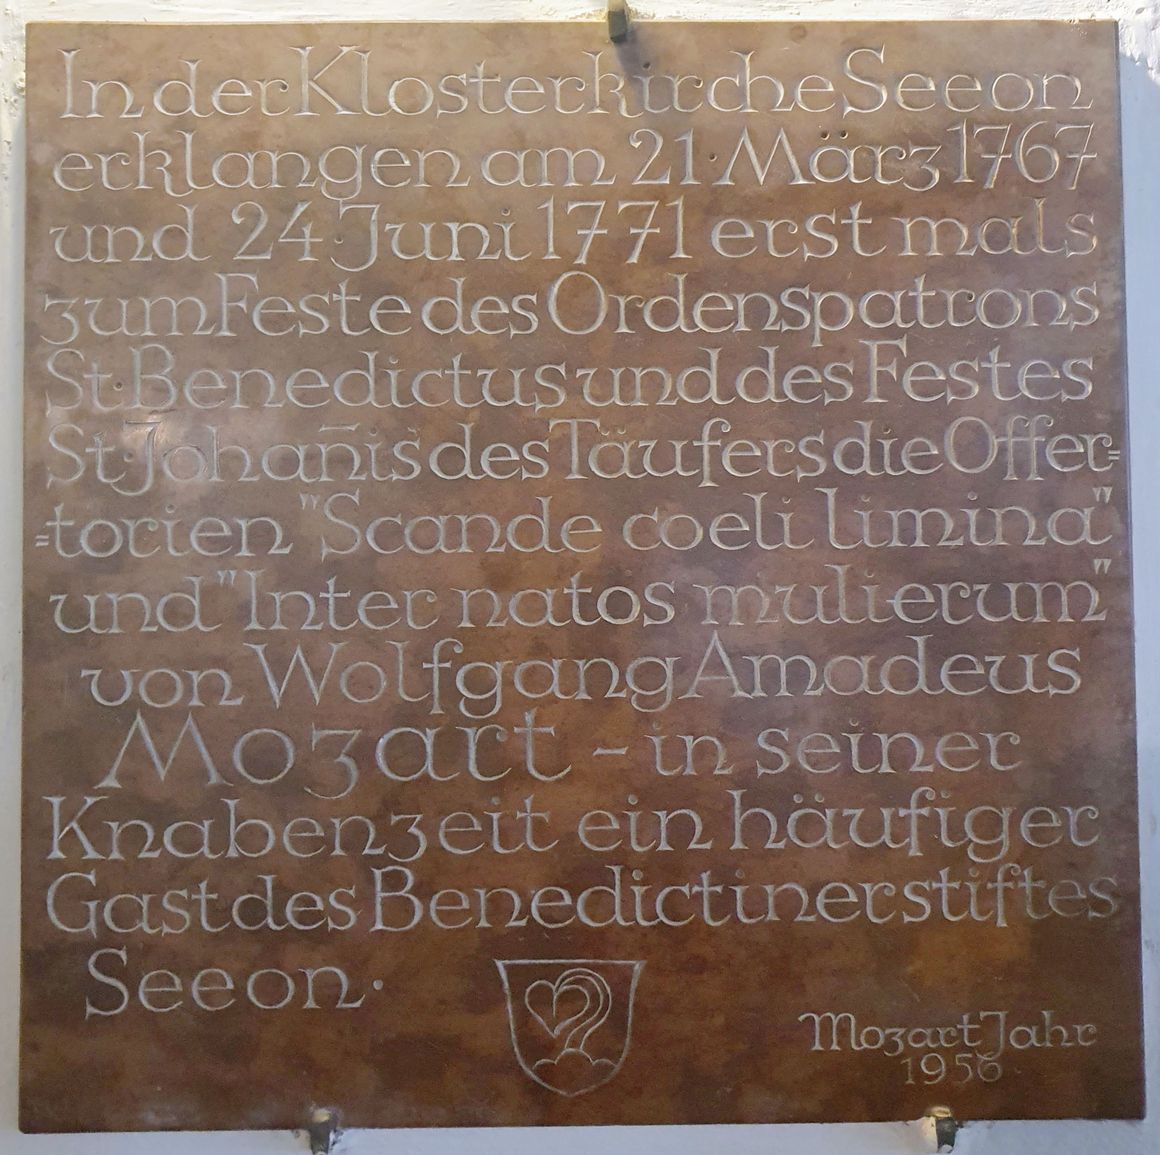 In der Klosterkirche Seeon
erklangen am 21. März 1767
und 24. Juni 1771 erstmals
zum Feste des Ordenspatrons
St. Benedictus und des Festes
St. Johañis des Täufers die Offer=
=torien "Scande coeli limina"
und "Inter natos mulierum"
von Wolfgang Amadeus
Mozart – in seiner
Knabenzeit ein häufiger
Gast des Benedictinerstiftes
Seeon.
Mozart Jahr
1956.